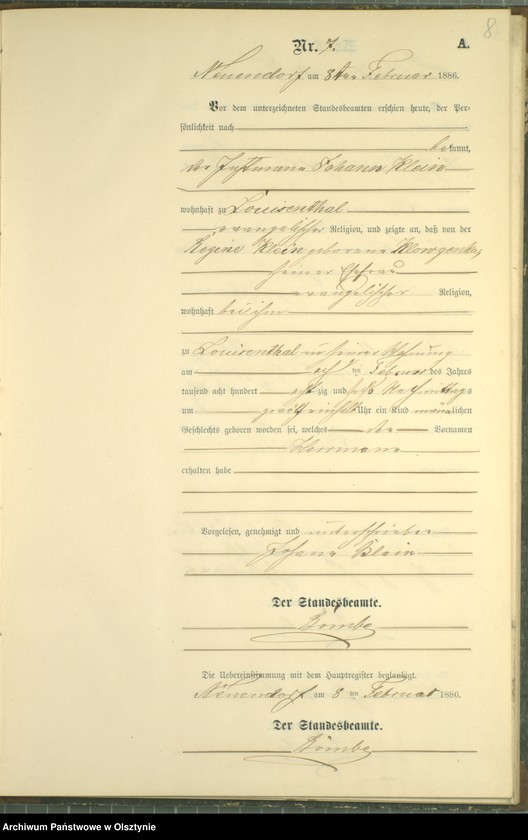 8
Nr. 7. A.
Neuendorf am 8ten Februar 1886.
Vor dem unterzeichneten Standesbeamten erschien heute, der Per-
sönlichkeit nach
bekannt,
der Johann Klein
wohnhaft zu Louisenthal
evangelischer Religion, und zeigte an, daß von der
Regine Klein geborene
seiner Ehefrau
evangelischer Religion,
wohnhaft bei ihm
zu Louisenthal in seiner Wohnung
am ten Februar des Jahres
tausend acht hundert achtzig und sechs Nachmittags
um Uhr ein Kind männlichen
Geschlechts geboren worden sei, welches den Vornamen
Herrmann
erhalten habe
Vorgelesen, genehmigt und unterschrieben
Johann Klein
Der Standesbeamte.
Die Uebereinstimmung mit dem Hauptregister beglaubigt.
Neuendorf am 8 ten Februar 1886.
Der Standesbeamte.
Archiwum Państwowe w Olsztynie